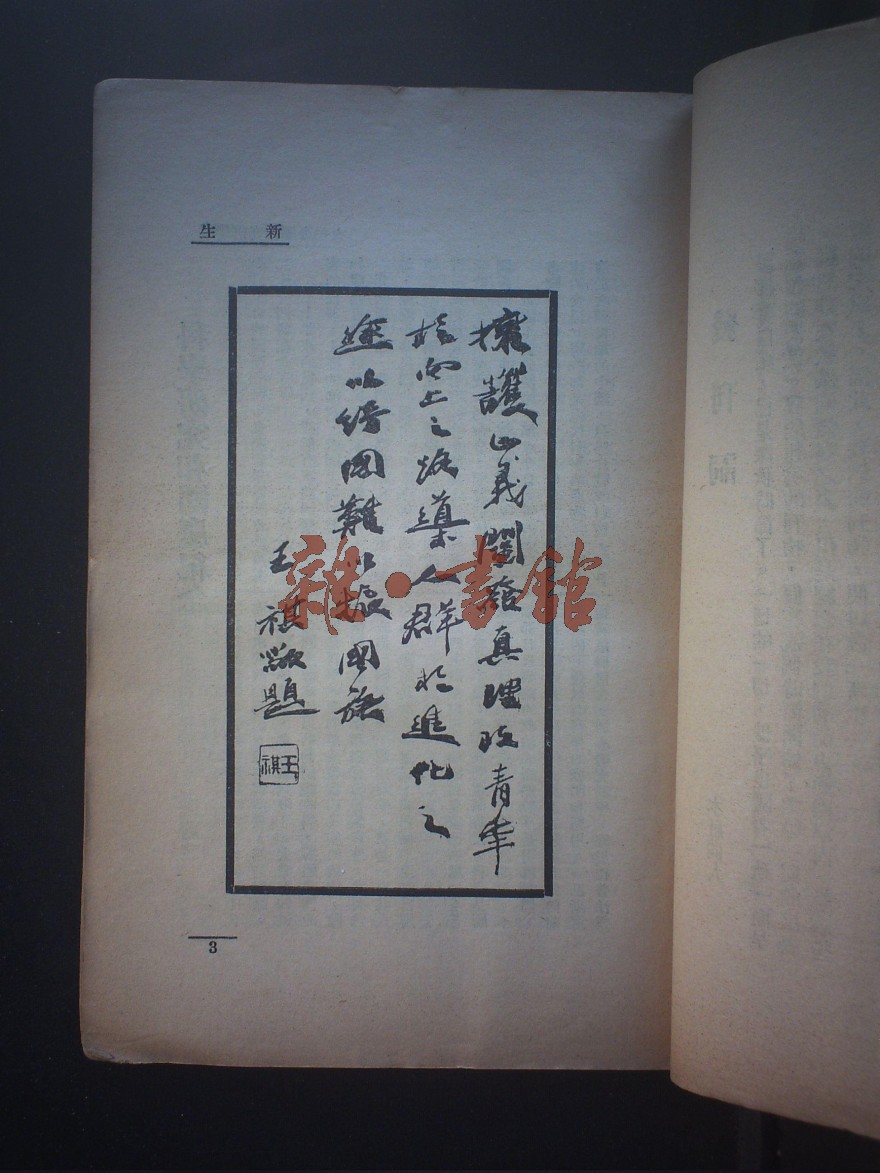 新生
擁護正義闡真理致青年
於向上之導人群於進化之
途以國難以振國族
王祺敬題
王祺
雜·書館
3